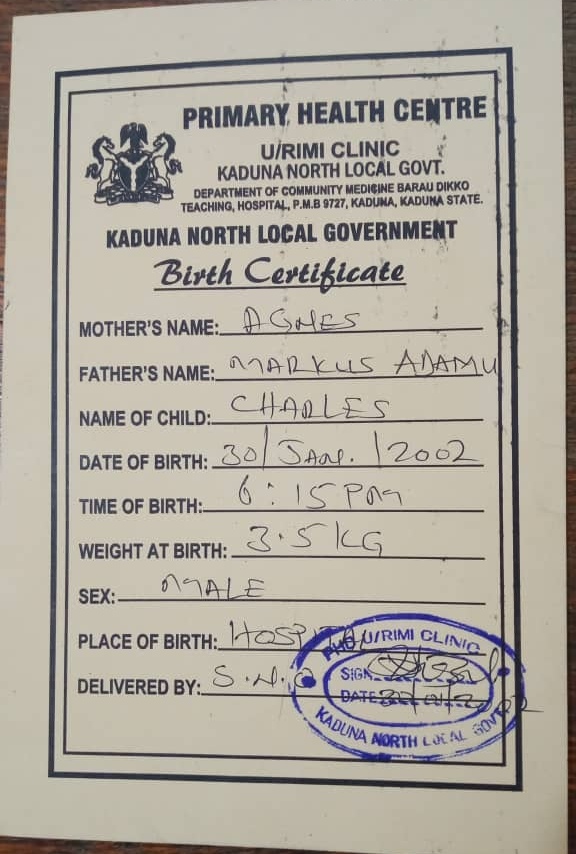 PRIMARY HEALTH CENTRE
U/RIMI CLINIC
KADUNA NORTH LOCAL GOVT.
DEPARTMENT OF COMMUNITY MEDICINE BARAU DIKKO
TEACHING, HOSPITAL, P.M.B 9727, KADUNA, KADUNA STATE.
KADUNA NORTH LOCAL GOVERNMENT
Birth Certificate
MOTHER'S NAME: AGNES
FATHER'S NAME: MARKUS ADAMU
NAME OF CHILD: CHARLES
DATE OF BIRTH: 30/JAN./2002
TIME OF BIRTH: 6:15PM
WEIGHT AT BIRTH: 3.5KG
SEX: MALE
PLACE OF BIRTH: HOSPITAL
DELIVERED BY: S.N.O
PHC U/RIMI CLINIC
SIGN
DATE
KADUNA NORTH LOCAL GOVT